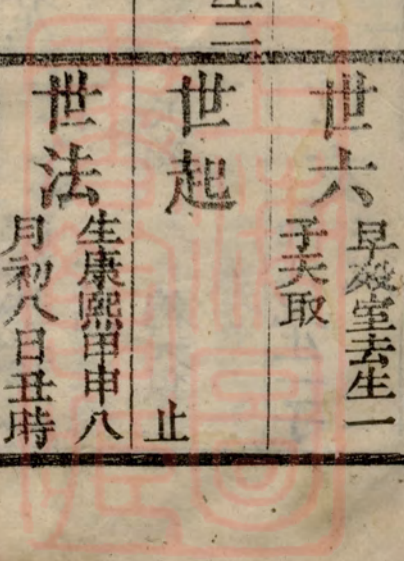 生二
世六
早歿室去生一
子天取
世起
止
世法
生康熙甲申八
月初八日丑時